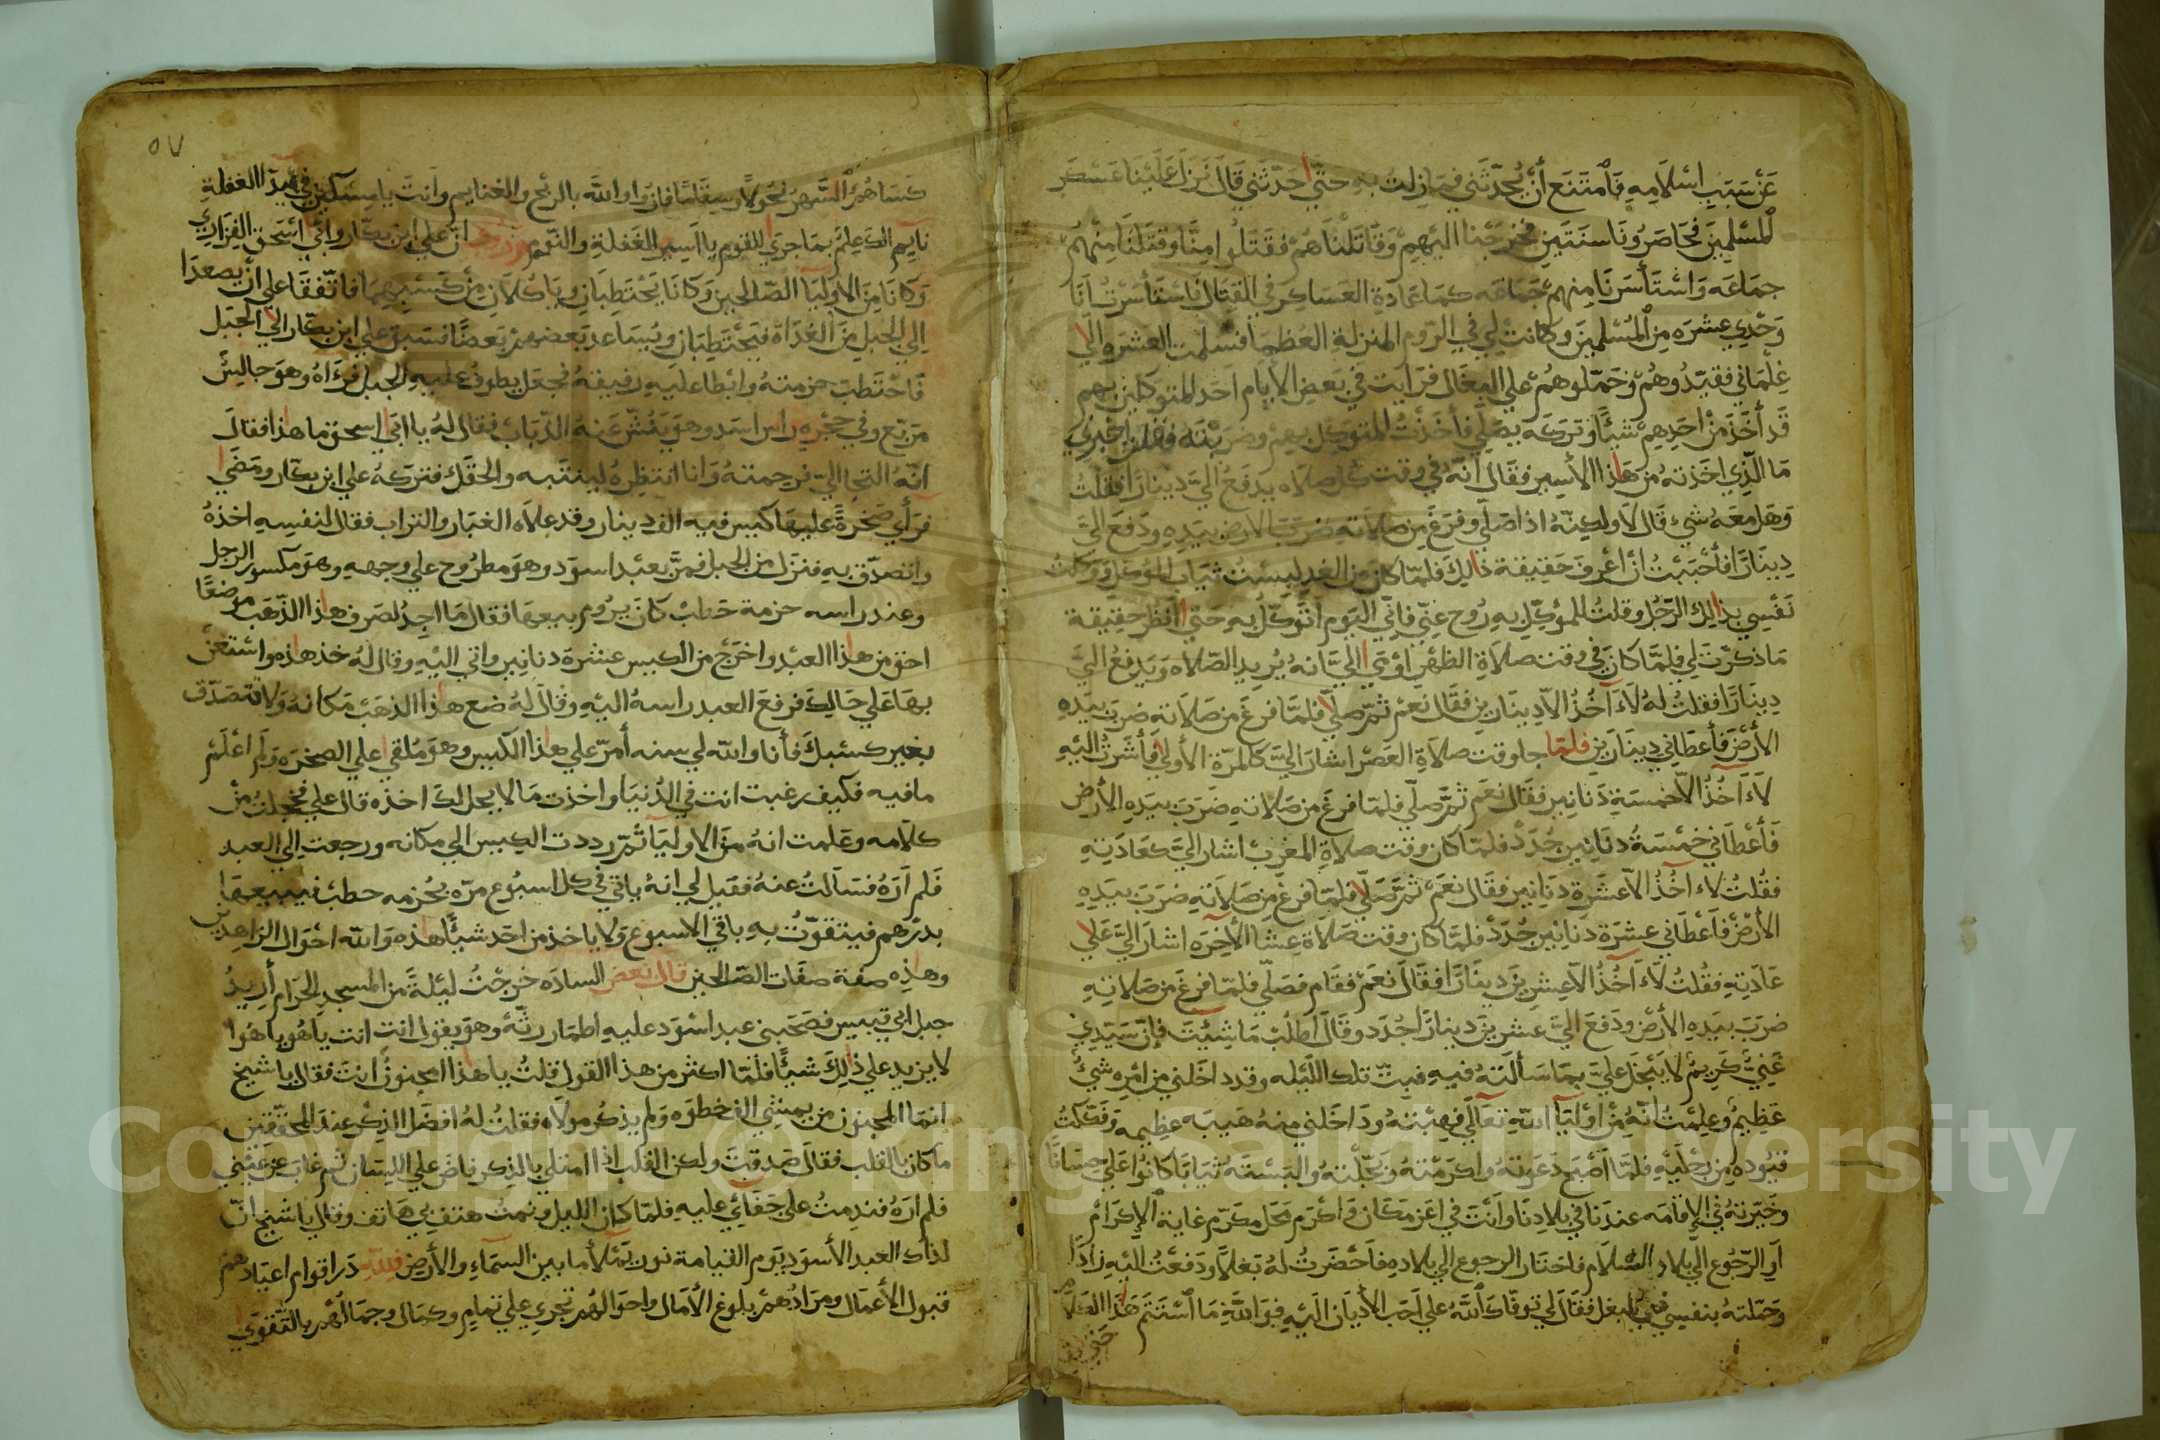 عَنْ سَبَبِ اسْلَامِهِ فَامْتَنَعَ أَنْ يُحَدِّثَنِي فَمَا زِلْتُ بِهِ حَتَّى حَدَّثَنِي قَالَ نَزَلَ عَلَيْنَا عَسْكَر
المُسْلِمِينَ فَحَاصَرُونَا سَنَتَيْنِ فَخَرَجْنَا الَيْهِمْ وَقَاتَلْنَاهُمْ فَقَتَلُوا مِنَّا وَقَتَلْنَا مِنْهُمْ
جمَاعَه وَاسْتَأْسَرْنَا مِنْهُمْ جَمَاعَه كمَا عَادَةِ العَسَاكِرِ فِي القِتَالِ فَاسْتَأْسَرْتُ انَا
وَحْدِي عشرَه مِنَ المُسْلِمِينَ وكانَتْ لِي فِي الرّوم المنزلةِ العُظمَا فسلمت العَشَره الي
غِلْمَاني فقيّدُوهُمْ وَحَمَّلوهُمْ علي البِغَالِ فرَايت في بَعضِ الأيّام احَد المتوكلين بهم
قَد أَخَذَ مِنْ احَدِهِمْ شَيْئًا وَتركَه يصَلّي فأخَذْتُ المتوكل بهم وضَرَبْتَهُ وقلت اخبِرني
مَا الَّذِي اخَذتهُ مِنْ هَذا الأسِير فقَال انَّهُ فِي وقت كُل صَلَاه يدفَعُ اليَّ دينارًا فقلتُ
وَهَل مَعَهُ شَيْء قَالَ لَا ولكِنَّهُ اذا صَلّي وفرغَ مِن صَلاته ضرَبَ الارض بيَدِهِ ودَفَعَ اليَّ
دِينَارًا فأحْبَبْتُ انْ أعْرفَ حَقِيقة ذالِكَ فلمّا كان من الغَدِ لبِسْتُ ثيَابَ المُوَكَّلِ ووَكلتُ
نَفْسِي بذالِكَ الرّجُل وقلتُ للمُوَكّلِ بهِ رُوح عَنِّي فإنّي اليَوم اتَوكّلُ بهِ حَتّي انظر حقِيقة
مَا ذكَرْتَ لي فلمَّا كانَ فِي وقت صلاةِ الظهْرِ اوْمَي اليَّ انهُ يُرِيد الصّلاه ويَدفعُ اليَّ
دِينَارًا فقلتُ لهُ لَا آخُذُ الاّ دِينَارين فقَال نعَمْ ثمّ صلّي فلمَّا فرغَ من صَلَاته ضرَبَ بيَدِهِ
الأرْضَ فأعطَانِي دِينَارَيْن فلمّا جا وقت صلاةِ العَصْر اشارَ اليَّ كالمرّة الأولي فأشَرتُ اليْهِ
لَا آخُذُ الاّ خمسَة دَنَانِير فقَال نعَم ثمَّ صَلّي فلمّا فرغَ من صَلاتهِ ضَرَبَ بيَدِهِ الأرض
فَأعْطَاني خمْسَةُ دنَانِيرَ جُدَدْ فلمّا كان وقت صلاةِ المغْرِبْ اشار اليَّ كعَادَتِهِ
فقُلتُ لَا آخُذُ الاّ عشَرَة دنَانير فقَال نعَمْ ثمَّ صَلّي فلمّا فرغ مِن صَلَاتهِ ضرَبَ بيَدِهِ
الأرْضْ فأعْطَاني عشرَة دنَانِير جُدَدْ فلمّا كان وقت صَلاة عِشا الآخِرَه اشارَ اليَّ عَلي
عَادَتِهِ فقُلتُ لَا آخُذُ الاّ عِشرِينَ دِينَارًا فقَالَ نعَمْ فقَام فصَلّي فلمّا فرغَ مِن صَلاتِهِ
ضرَبَ بيَدِهِ الأرْضْ ودَفعَ اليَّ عشرينَ دينارًا جُدَد وقَالَ اطلُبْ مَا شِئتَ فإنّ سَيّدِي
غَنِيٌّ كَرِيمٌ لا يَبخَل عَليَّ بمَا سَألتُهُ فيهِ فبِتُّ تلك اللّيله وقد داخَلني من امْرِه شيْءٌ
عَظِيمٌ وعَلِمْتُ انّهُ مِنْ اوْليَآ اللهِ تعَالَي فهِبْتهُ ودَاخَلني منهُ هَيبَه عظِيمه وفَكَكتُ
قيُوده مِن رِجْليْهِ فلمَّا اصْبَحَ دعَوتهُ واكرَمْتهُ وبَجّلْتهُ والبَسْتهُ ثيَابًا كانوا عَلي حِسَانًا
وخَيّرتهُ في الإقامَه عندنا في بلادِنَا وَانتَ في اعزِ مَكَان واكْرَم مَحَل مكَرَّم غاية الإكرَامْ
اوِ الرّجُوع الي بلاد السْلَام فاختَار الرجوع الي بلادهِ فاحْضَرتُ لهُ بَغلًا ودَفعْتُ اليْهِ زادًا
وَحمّلتهُ بنفسِي علي البغل فقَال لي توفّاكَ اللهُ علي احَب الأديَان اليْهِ فوَاللهِ مَا اسْتتَم هَذا الكلَامْ
حَتّي
٥٧
كَسَاهُمُ السَّهَر نُحُولًا وسِقَامًا فازُوا واللهِ بالرّبح والغنايم وانتَ يا مسكين في هَذا الغفلةِ
نايِم الكَ عِلمٌ بمَا جرَي للقوم يا اسِير الغَفلةِ والنّوم وروي انّ علي ابن بكّار وابي اسحق الفزَاري
وَكانَا مِنَ الاَوليَآ الصّالحِين وَكانا يَحْتَطِبَانِ وياكُلانِ مِنْ كسْبِهِمَا فاتّفقَا علي انْ يصعدَا
اِلي الجبلِ مِنَ الغُدَاة فيَحْتَطبَان ويُسَاعِد بَعضهمْ بَعضًا فسَبق علي ابن بكّار الي الجَبَل
فَاحْتَطَبَ حزمتهُ وابْطا عليهِ رفيقهُ فجَعَل يطوفُ عليهِ الجبل فرَءاهُ وهوَ جالِسٌ
مربّع وفي حجْرِهِ راس اسَد وهوَ يَنُشّ عَنهُ الذّبَاب فقال لهُ يا ابي اسحق ما هذا فقالَ
انّهُ التجا اليّ فرحمتهُ وانا انتظِرهُ لينتَبه والحقَكَ فتركهُ علي ابن بكّار ومَضَي
فرَأي صَخرةً عليهَا كيس فيه الف دينار وقد عِلاه الغبَار والتراب فقال لنفسِهِ اخذهُ
واتصدّق به فنزل من الجبل فمرَّ بعَبْد اسوَد وهوَ مطرُوح علي وجههِ وهوَ مكسور الرجل
وعند راسه حزمة حَطبْ كانَ يرُوم بيعهَا فقال مَا اجدُ لصَرف هذا الذّهَب موضعًا
احق من هذا العبْد واخرَجَ من الكيس عشرة دنانير واتي اليْهِ وقال لهُ خذ هاذه واسْتَعِنْ
بهَا علي حَالِكَ فرفعَ العبد راسهُ اليْهِ وقال لهُ ضع هذا الذهَب مكَانهُ ولا تتصَدّق
بغير كسْبِكَ فأنا والله لي سنه أمرّ علي هذا الكيس وهوَ مُلقي علي الصخرَة ولم اعْلَمْ
ما فيه فكيف رغبت انت في الدُنيَا واخذت مَا لا يحل لك اخذه قال علي فخجلتُ مِنْ
كلَامه وعَلمت انهُ منَ الاوليَآ ثمّ رددت الكيس الي مكانه ورجعت اِلي العبد
فَلم ارَهُ فسَالتُ عنهُ فقيل لي انهُ ياتي في كل اسبُوع مرّه بحُزمه حطبْ فيبيعهَا
بدرْهم فيتقوّتُ بهِ باقي الاسبوع ولا ياخذ من احَد شيئًا هذه وَالله احْوَال الزاهِدين
وهذِه صفة صفَات الصّالحين قال بَعض السادَه خرجْتُ ليْلةً من المسجدِ الحَرَام أريدُ
جبل ابي قبيس فصَحَبني عبد اسْوَد عليهِ اطمَار رثّهٌ وهوَ يقول انت انت يا هُو يا هُوا
لا يزيد علي ذلِكَ شيئًا فلمّا اكثر من هذا القول قلتُ يا هذا امجنونٌ انتَ فقال يا شيخ
انمّا المجنون من يمشي الف خطوَه ولم يذكر مولَاه فقلتُ لهُ افضَل الذِكْر عندَ المحققين
ما كانَ بالقلب فقالَ صَدقتَ ولكن القلب اذا امتلي بالذِكر فاضَ علي اللِسَان ثم غابَ عن عَيْني
فلم ارَهُ فندِمتُ علي جَفَائِي عليهِ فلمّا كان الليل ونمتُ هتفَ بي هَاتف وقال يا شيخ انّ
لذاك العبد الأسوَد يَوم القيامة نورٌ يَملأ ما بين السمَآءِ والأرض فلله دَر اقوام اعتيَادهُم
قبول الأعمَال ومرَادُهمْ بلوغ الأمَال واحوَالهُم تجرِي علي تمَام وكمَال وجمَالهُم بالتّقوَي